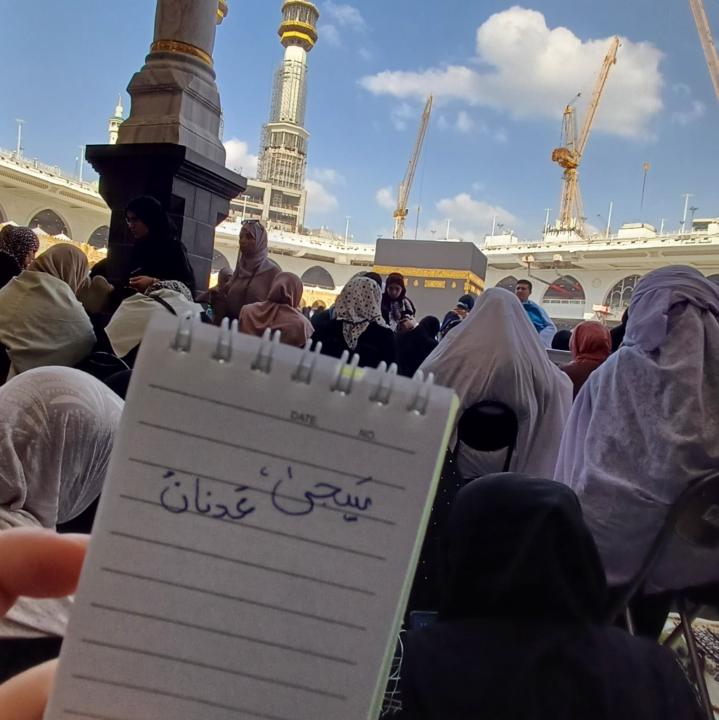 DATE NO.
يَحيىٰ، عَدنانْ